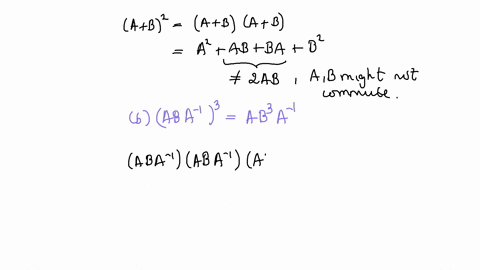 (A+B)² = (A+B) (A+B)
= A² + AB + BA + B²
≠ 2AB , A,B might not commute.
(b) (ABA⁻¹)³ = AB³A⁻¹
(ABA⁻¹) (ABA⁻¹) (A